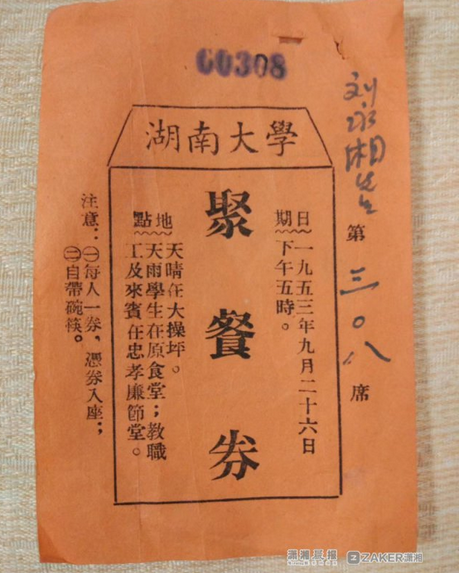 00308
湖南大學
刘永湘先生
第三〇八席
日期
一九五三年九月二十六日
下午五時。
聚餐券
地點
天晴在大操坪。
天雨學生在原食堂；教職
工及來賓在忠孝廉節堂。
注意：㊀每人一券，憑券入座；
㊁自帶碗筷。
瀟湘晨报
ZAKER潇湘